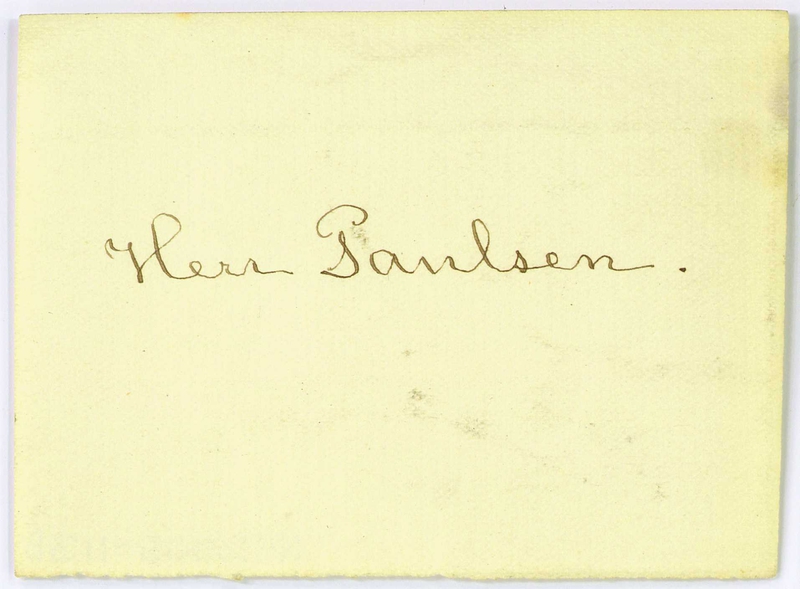 Herr Paulsen.